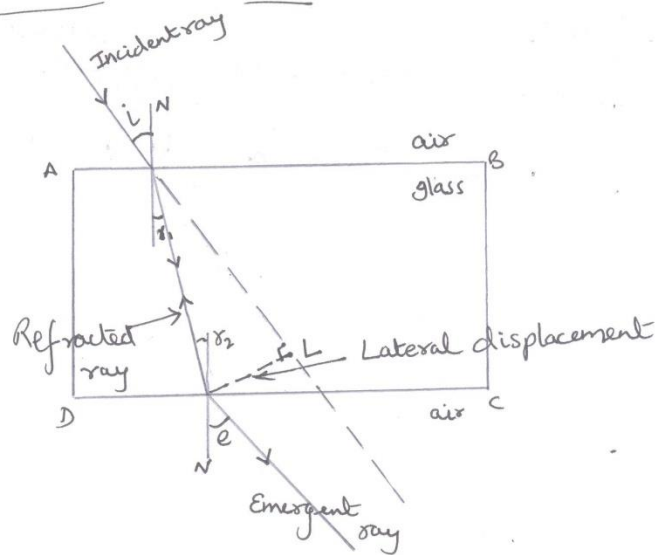 Incident ray
i
N
air
A
B
glass
r₁
Refracted
ray
r₂
L
Lateral displacement
D
air
C
e
N
Emergent
ray